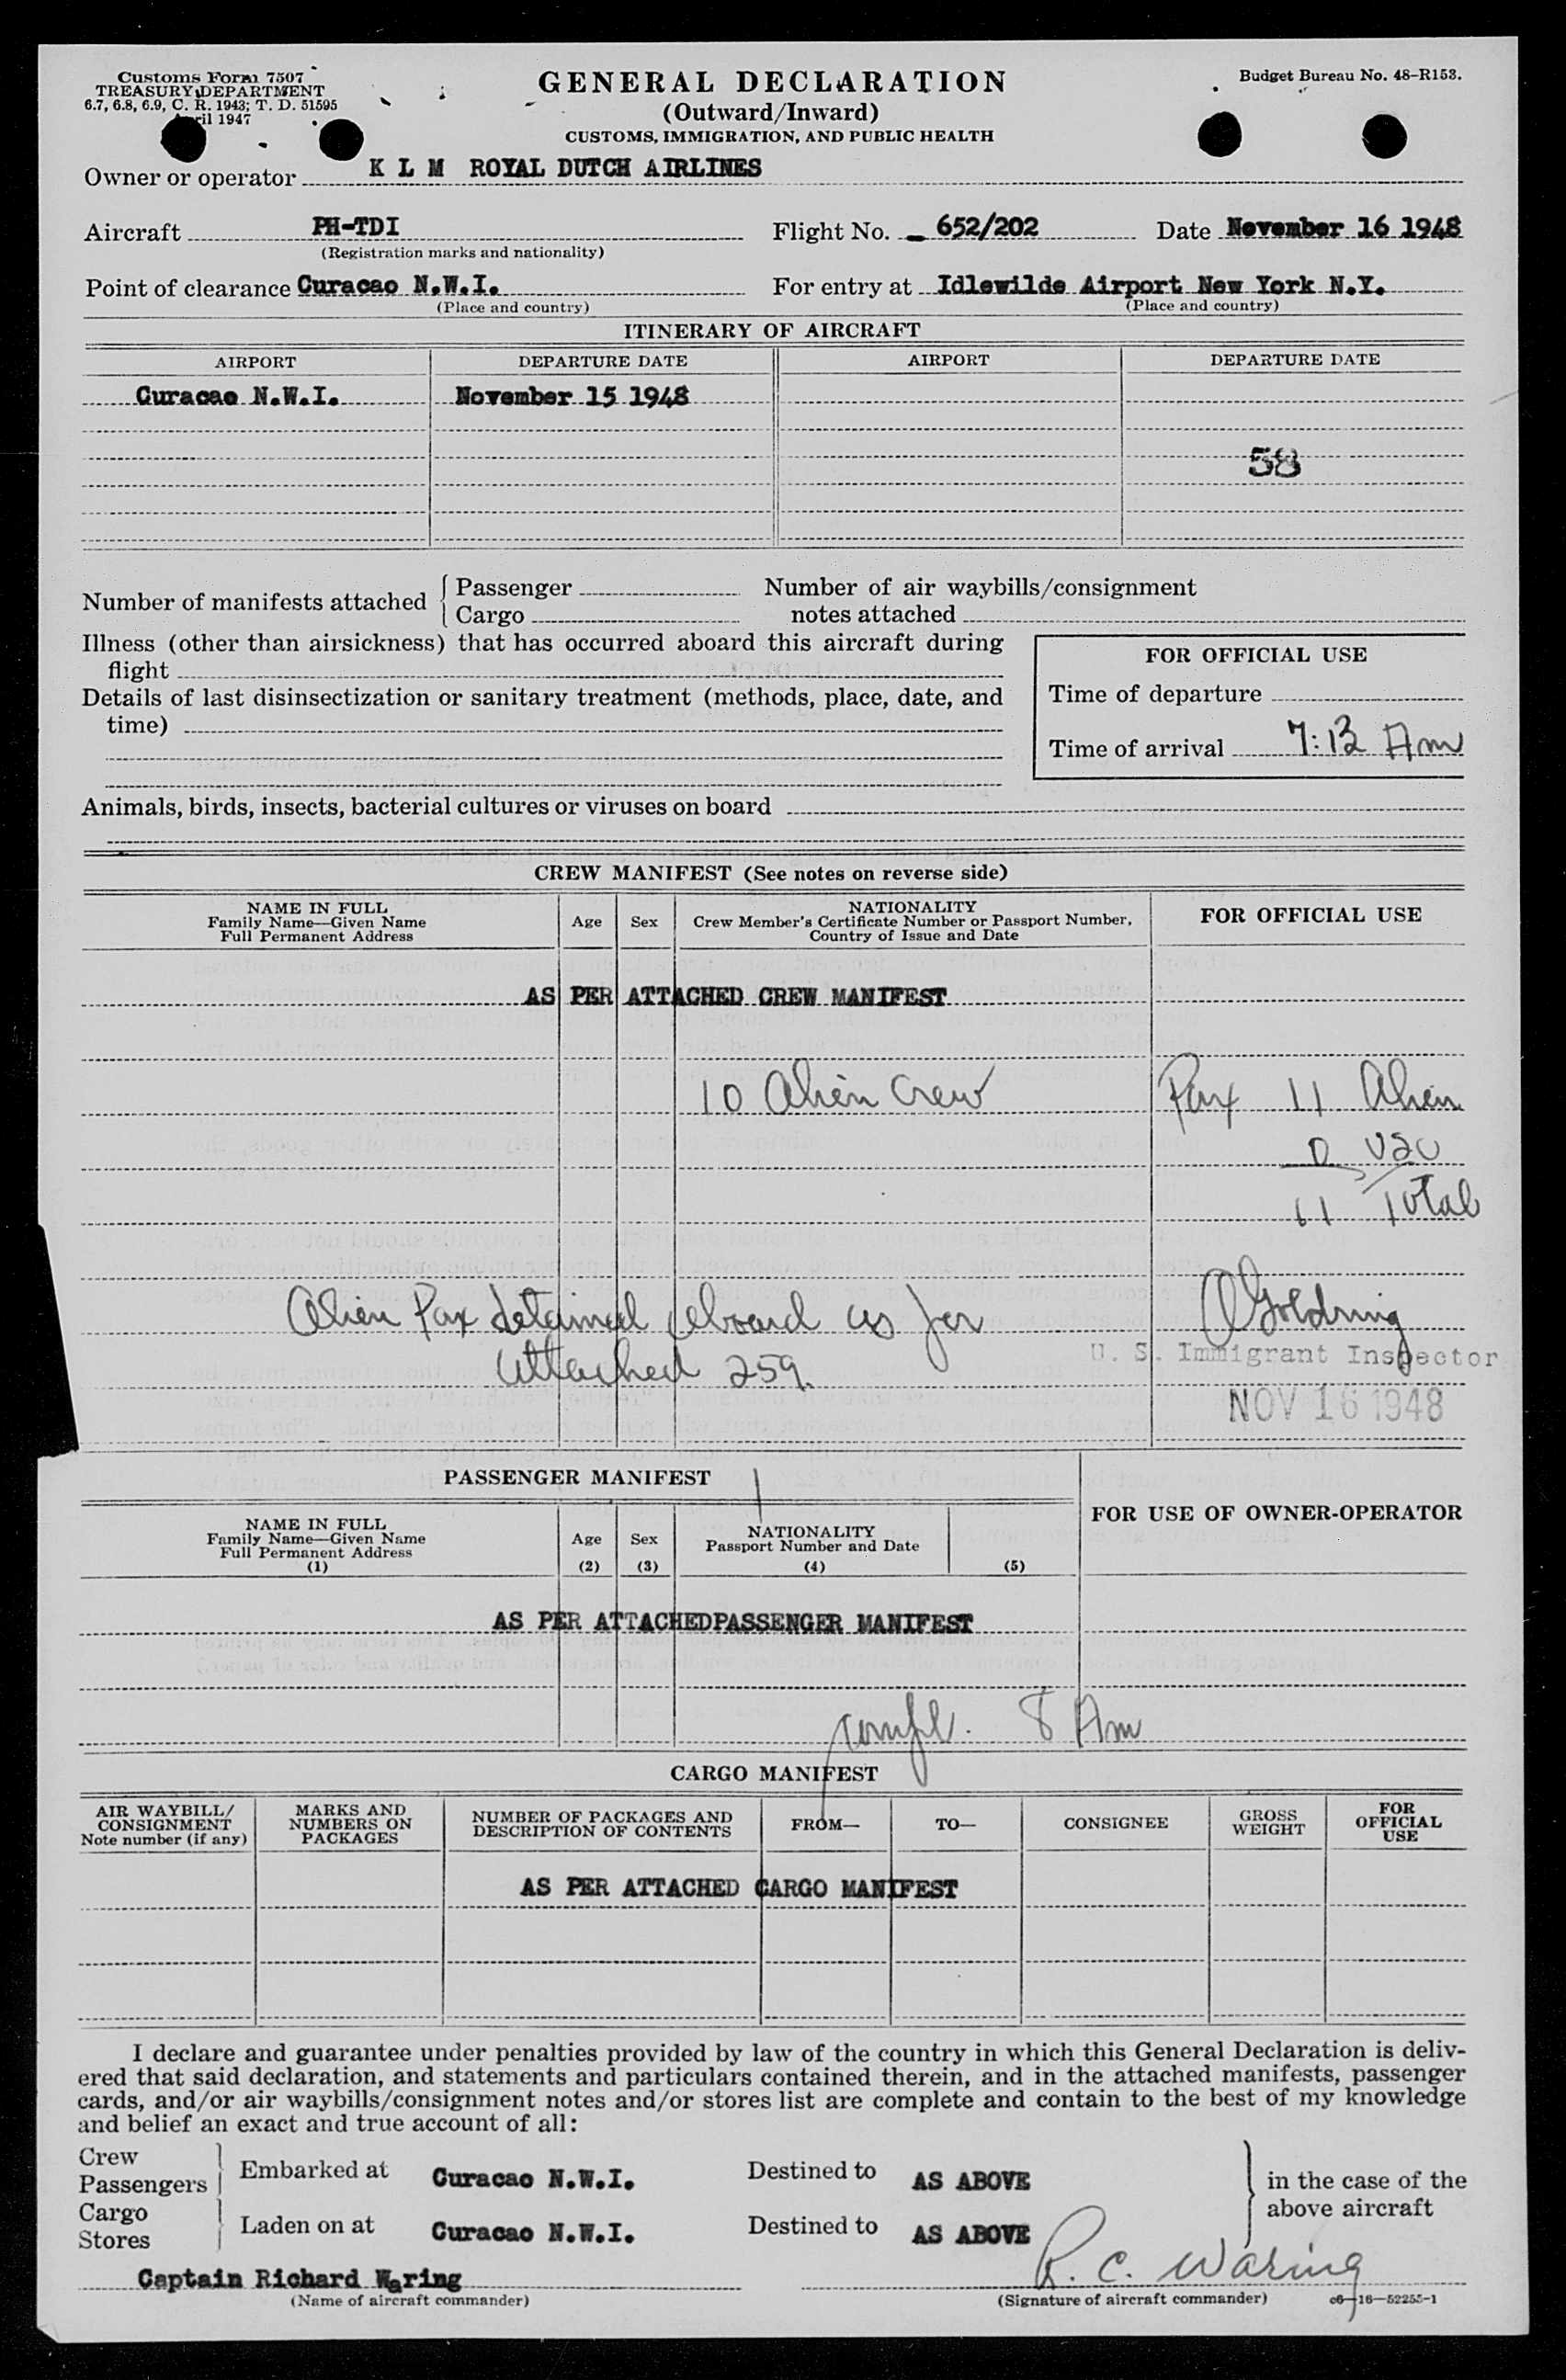 Customs Form 7507
TREASURY DEPARTMENT
6.7, 6.8, 6.9, C. R. 1943; T. D. 51595
April 1947
GENERAL DECLARATION
(Outward/Inward)
CUSTOMS, IMMIGRATION, AND PUBLIC HEALTH
Budget Bureau No. 48-R153.
Owner or operator K L M ROYAL DUTCH AIRLINES
Aircraft PH-TDI Flight No. 652/202 Date November 16 1948
(Registration marks and nationality)
Point of clearance Curacao N.W.I. For entry at Idlewilde Airport New York N.Y.
(Place and country) (Place and country)
ITINERARY OF AIRCRAFT
AIRPORT DEPARTURE DATE AIRPORT DEPARTURE DATE
Curacao N.W.I. November 15 1948
58
Number of manifests attached { Passenger
Cargo
Number of air waybills/consignment
notes attached
Illness (other than airsickness) that has occurred aboard this aircraft during
flight
Details of last disinsectization or sanitary treatment (methods, place, date, and
time)
FOR OFFICIAL USE
Time of departure
Time of arrival 7:13 Am
Animals, birds, insects, bacterial cultures or viruses on board
CREW MANIFEST (See notes on reverse side)
NAME IN FULL
Family Name—Given Name
Full Permanent Address
Age
Sex
NATIONALITY
Crew Member's Certificate Number or Passport Number,
Country of Issue and Date
FOR OFFICIAL USE
AS PER ATTACHED CREW MANIFEST
10 Alien Crew Pax 11 Alien
0 USC
11 Total
Alien Pax detained aboard as per
attached 259. 
Goldring
U. S. Immigrant Inspector
NOV 16 1948
PASSENGER MANIFEST
NAME IN FULL
Family Name—Given Name
Full Permanent Address
(1)
Age
(2)
Sex
(3)
NATIONALITY
Passport Number and Date
(4)
(5)
FOR USE OF OWNER-OPERATOR
AS PER ATTACHEDPASSENGER MANIFEST
compl. 8 Am
CARGO MANIFEST
AIR WAYBILL/
CONSIGNMENT
Note number (if any)
MARKS AND
NUMBERS ON
PACKAGES
NUMBER OF PACKAGES AND
DESCRIPTION OF CONTENTS
FROM—
TO—
CONSIGNEE
GROSS
WEIGHT
FOR
OFFICIAL
USE
AS PER ATTACHED CARGO MANIFEST
I declare and guarantee under penalties provided by law of the country in which this General Declaration is deliv-
ered that said declaration, and statements and particulars contained therein, and in the attached manifests, passenger
cards, and/or air waybills/consignment notes and/or stores list are complete and contain to the best of my knowledge
and belief an exact and true account of all:
Crew
Passengers } Embarked at Curacao N.W.I. Destined to AS ABOVE
Cargo
Stores } Laden on at Curacao N.W.I. Destined to AS ABOVE
} in the case of the
above aircraft
Captain Richard Waring R. C. Waring
(Name of aircraft commander) (Signature of aircraft commander) c6—16—52255-1